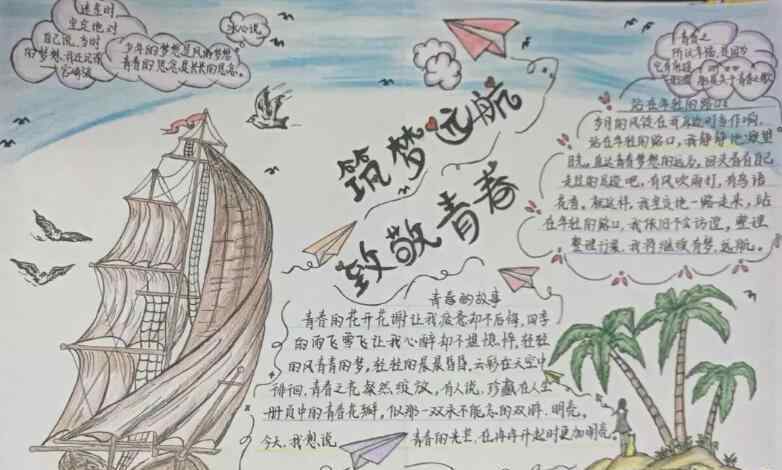 迷茫时
坚定地对
自己说，当时
的梦想，我还记得
宫崎骏
冰心说
少年的梦想是风的梦想
青春的思念是长长的思念。
筑梦远航
致敬青春
青春之
所以幸福，是因为
它有前途
站在年轻的路口
岁月的风铃在我耳边叮当作响，
站在年轻的路口，我静静地凝望
过的足迹吧，有风吹雨打，有鸟语
花香。就这样，我坚定地一路走来，站
在年轻的路口，我依旧不会彷徨，整理
整理行囊，我将继续有梦，远航。
青春的故事
青春的花开花谢让我疲惫却不后悔，四季
的雨飞雪飞让我心醉却不堪憔悴。轻轻
的风青青的梦，轻轻的晨晨昏昏，云彩在天空中
徘徊，青春之花粲然绽放，有人说，珍藏在人生
册页中的青春花瓣，似那一双永不能忘的双眸，明亮。
今天，我想说 青春的光芒，在冉冉升起时更加明亮。